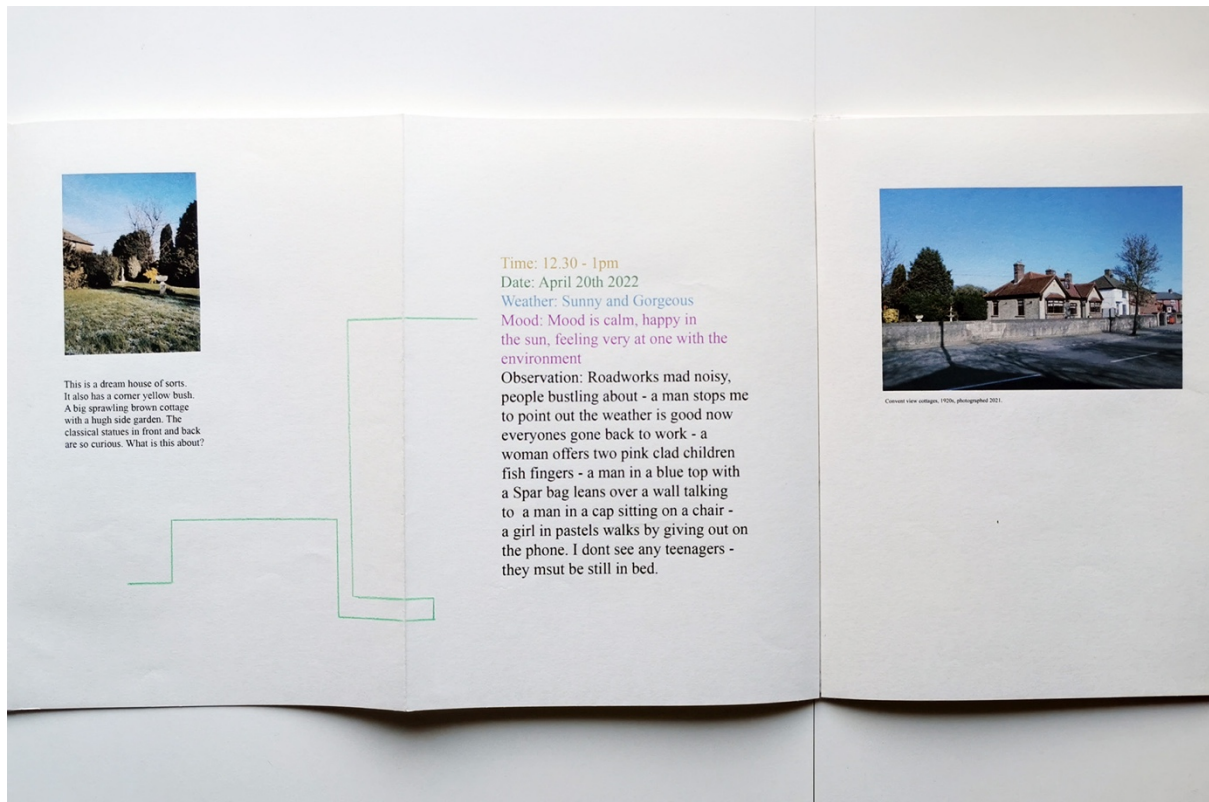 This is a dream house of sorts.
It also has a corner yellow bush.
A big sprawling brown cottage
with a hugh side garden. The
classical statues in front and back
are so curious. What is this about?
Time: 12.30 - 1pm
Date: April 20th 2022
Weather: Sunny and Gorgeous
Mood: Mood is calm, happy in
the sun, feeling very at one with the
environment
Observation: Roadworks mad noisy,
people bustling about - a man stops me
to point out the weather is good now
everyones gone back to work - a
woman offers two pink clad children
fish fingers - a man in a blue top with
a Spar bag leans over a wall talking
to a man in a cap sitting on a chair -
a girl in pastels walks by giving out on
the phone. I dont see any teenagers -
they msut be still in bed.
Convent view cottages, 1920s, photographed 2021.